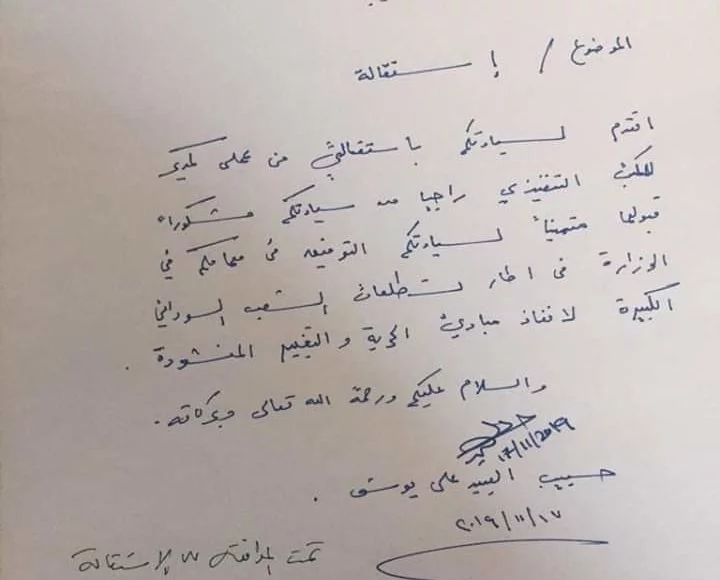 الموضوع / إستقالة
اتقدم لسيادتكم باستقالتي من عملى كمدير
للمكتب التنفيذي راجيا من سيادتكم مشكوراً
قبولها متمنياً لسيادتكم التوفيق فى مهامكم في
الوزارة فى اطار تطلعات الشعب السوداني
الكبيرة لانفاذ مبادئ الحرية و التغيير المنشودة .
والسلام عليكم ورحمة الله تعالى وبركاته .
١٧/١١/٢٠١٩
حسيب السيد على يوسف .
٢٠١٩/١١/١٧
تمت الموافقة على الإستقالة